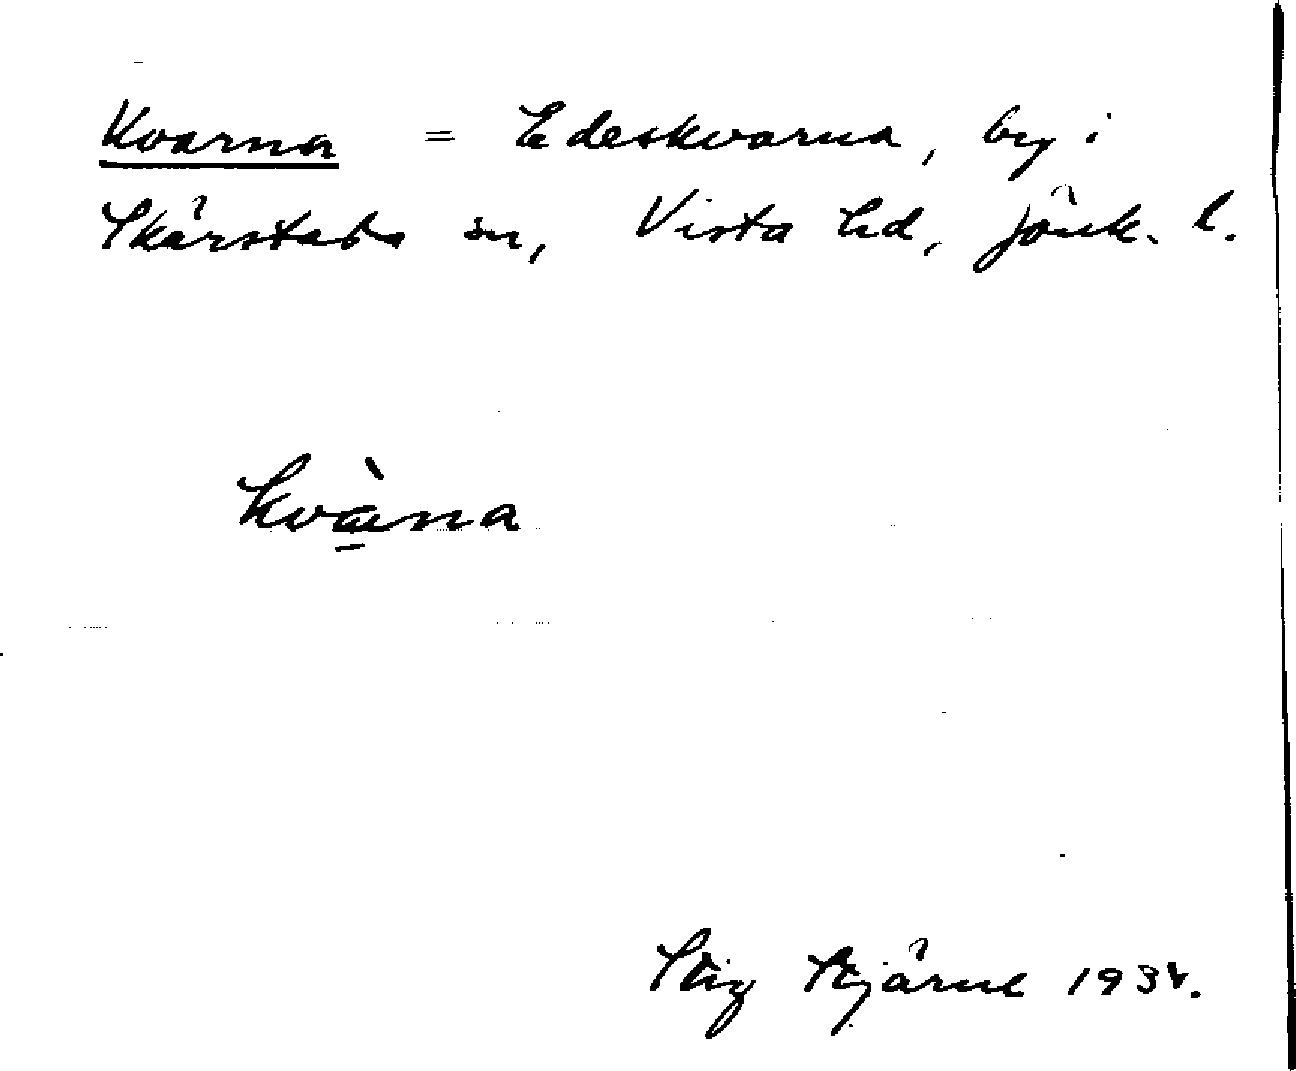 Kvarna = Edeskvarna, by i
Skärstads sn, Vista hd, Jönk. l.
kvàna
Stig Stjärne 193